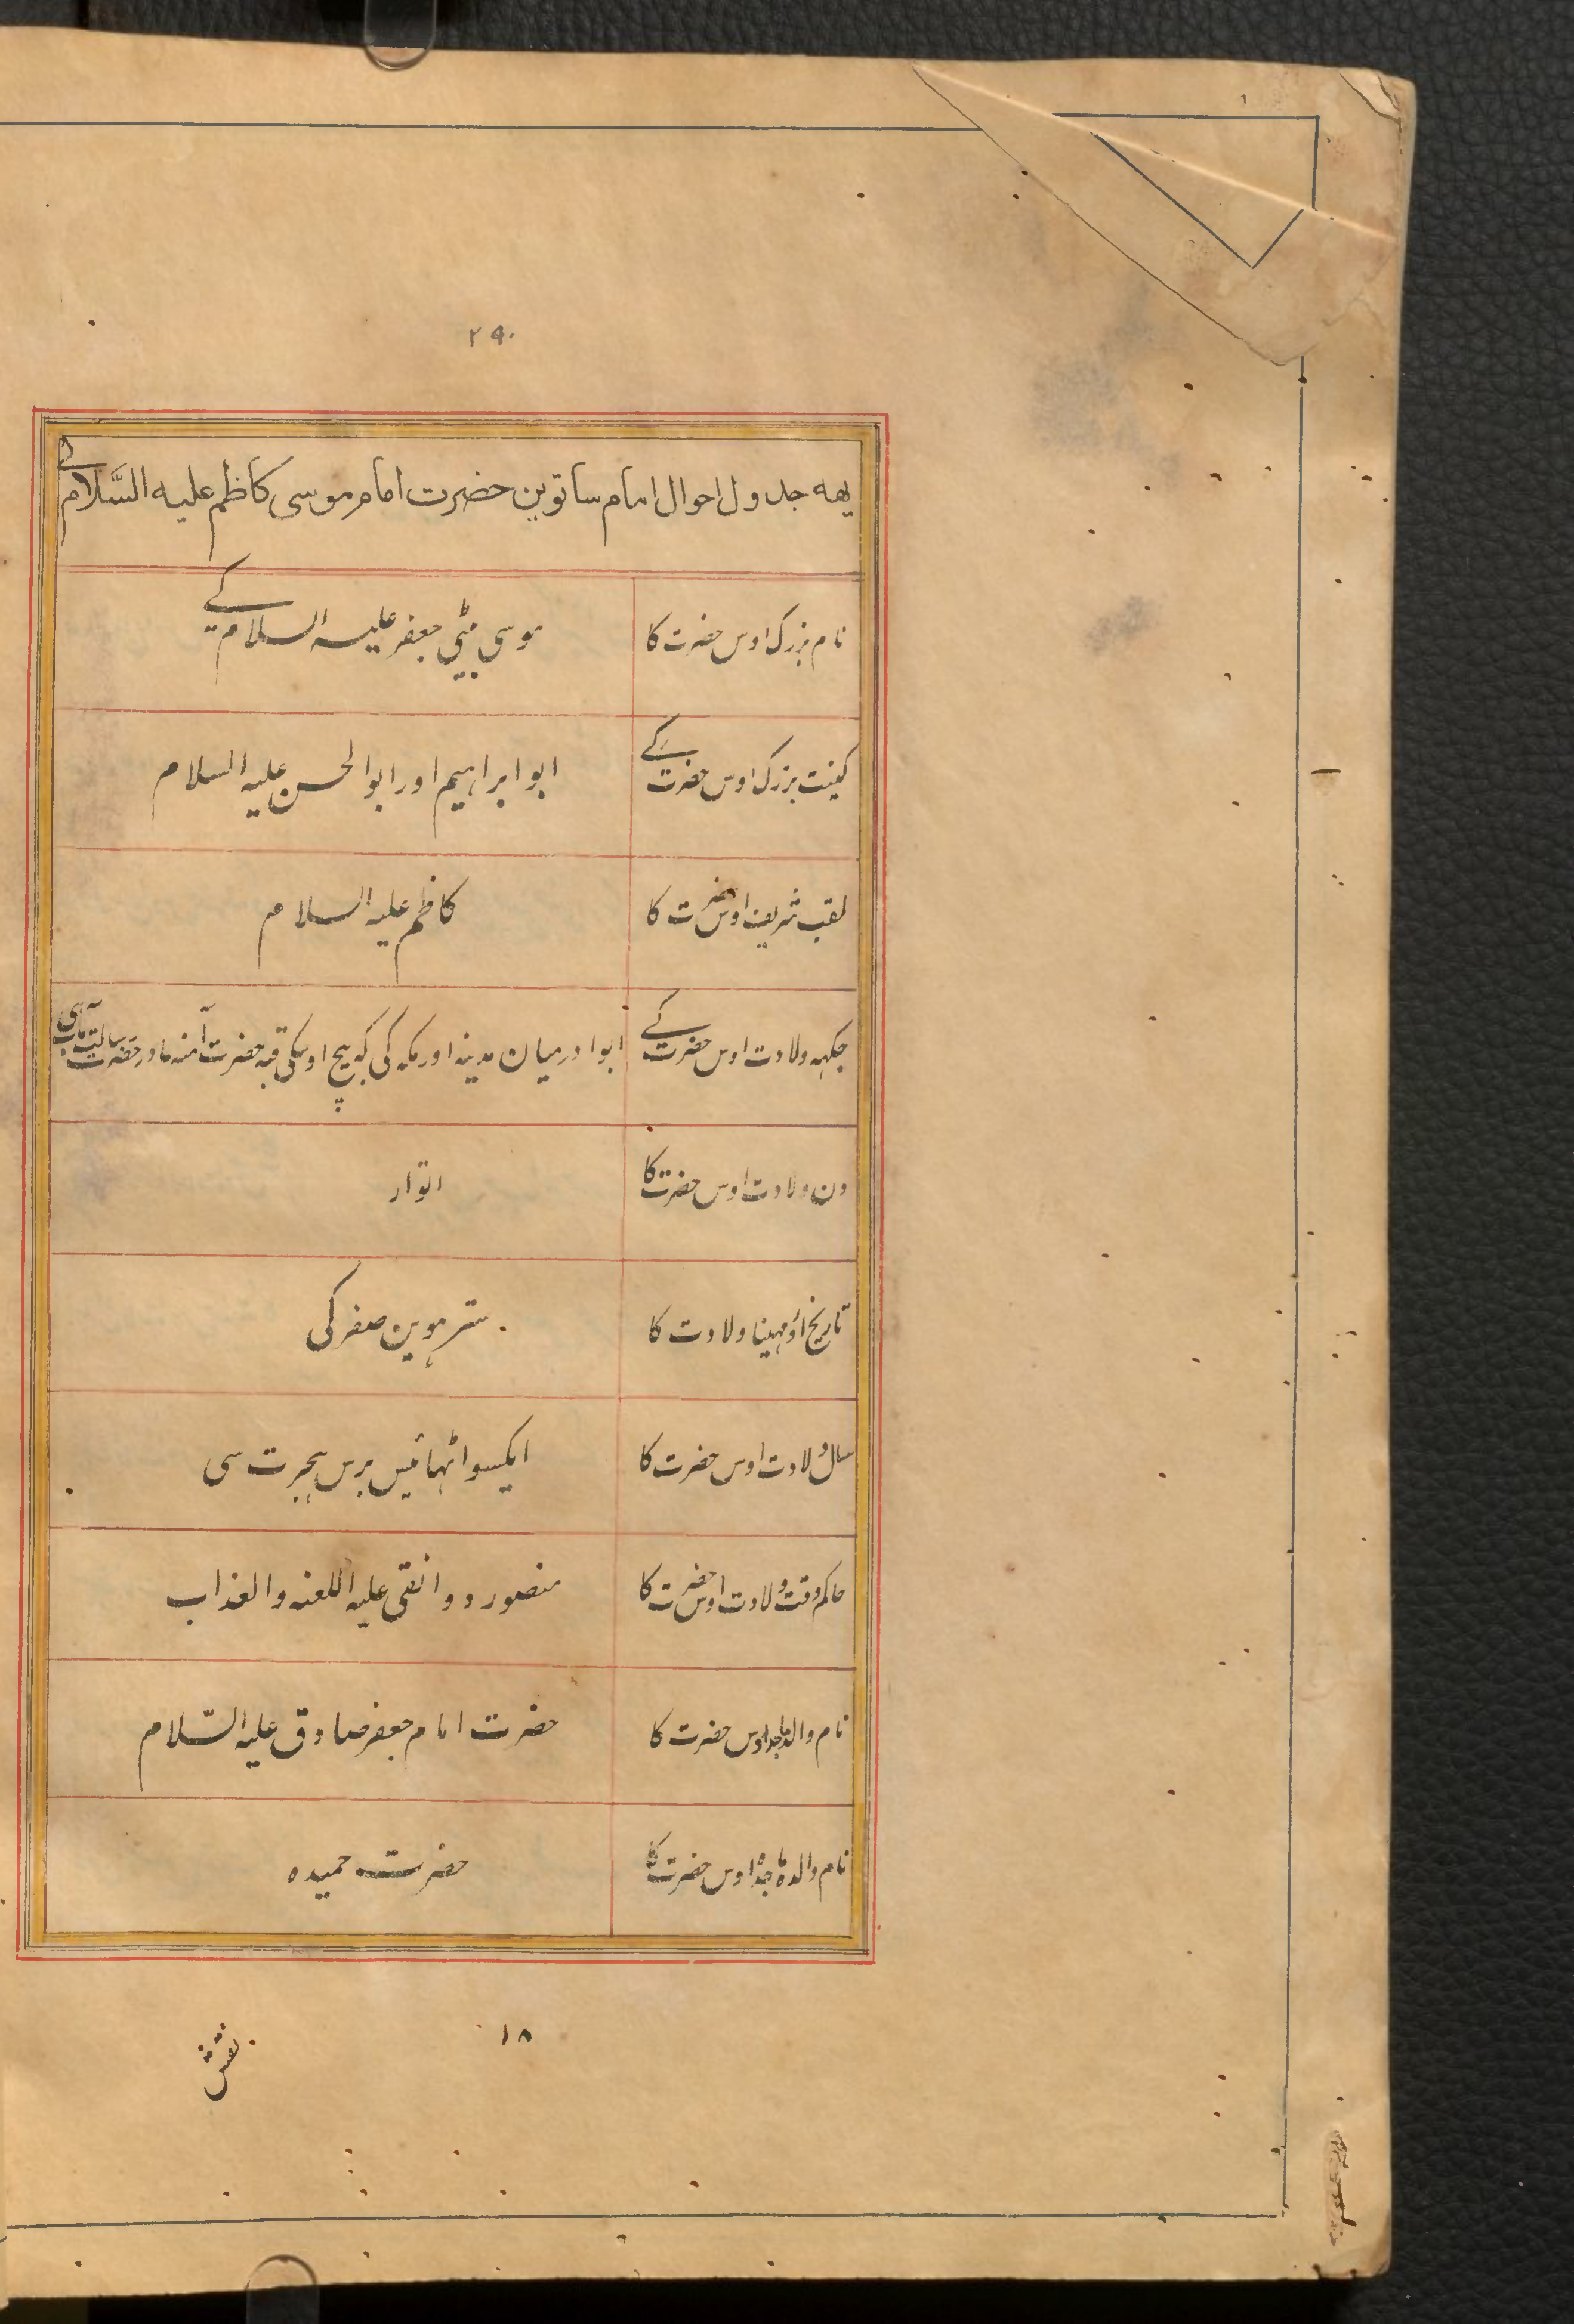 ۲۹۰
یهه جدول احوال امام ساتوین حضرت امام موسی کاظم علیه السَّلام کے
نام بزرک اوس حضرت کا موسی بیٹی جعفر علیہ السلام کے
کنیت بزرک اوس حضرت کے ابو ابراہیم اور ابو الحسن علیہ السلام
لقب شریف اوس حضرت کا کاظم علیہ السلام
جکہہ ولادت اوس حضرت کے ابوا درمیان مدینہ اور مکہ کی کہ بیچ اوسکی قبر حضرت آمنہ مادر حضرت رسالت مآب ہی
دن ولادت اوس حضرت کا اتوار
تاریخ اور مہینا ولادت کا سترہوین صفر کی
سال ولادت اوس حضرت کا ایکسو اٹہائیس برس ہجرت سی
حاکم وقت ولادت اوس حضرت کا منصور دوانقی علیہ اللعنہ والعذاب
نام والد ماجد اوس حضرت کا حضرت امام جعفر صادق علیہ السّلام
نام والدہ ماجدہ اوس حضرت کا حضرت حمیدہ
۱۸
نقش